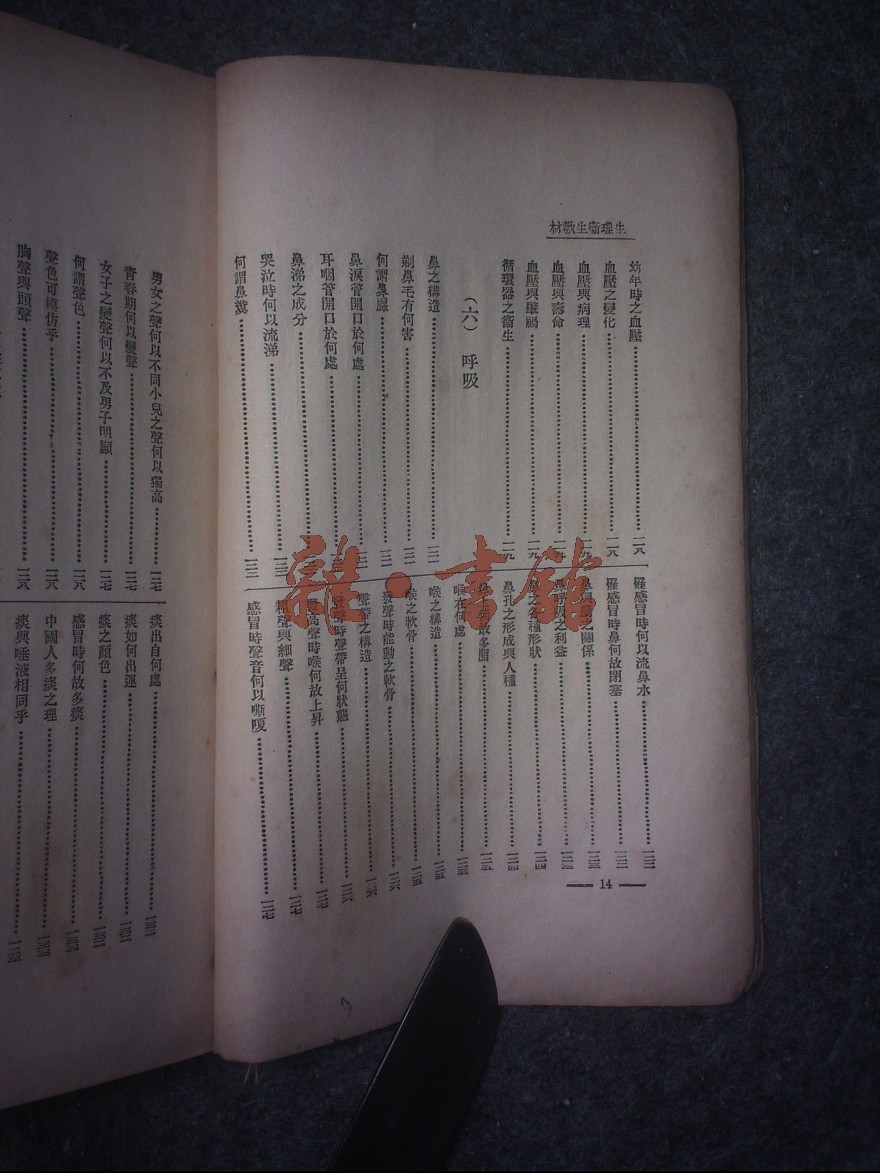 生理衞生教材
幼年時之血壓……一二八
血壓之變化……一二八
血壓與病理……一二八
血壓與壽命
血壓與肇禍……一二九
循環器之衞生……一二九
(六) 呼吸
鼻之構造……一三一
剃鼻毛有何害……一三一
何謂鼻腦
鼻淚管開口於何處
耳咽管開口於何處
鼻涕之成分
哭泣時何以流涕
何謂鼻糞……一三三
罹感冒時何以流鼻水……一三三
罹感冒時鼻何故閉塞……一三三
之關係
之利益
種形狀……一三四
鼻孔之形成與人種……一三四
故多脂……一三五
喉在何處……一三五
喉之構造……一三五
喉之軟骨……一三五
發聲時能動之軟骨……一三六
聲帶之構造……一三六
時聲帶呈何狀態……一三六
高聲時喉何故上昇……一三七
粗聲與細聲……一三七
感冒時聲音何以嘶嗄……一三七
— 14 —
男女之聲何以不同小兒之聲何以獨高……一三七
青春期何以變聲……一三七
女子之變聲何以不及男子明顯……一三七
何謂聲色……一三八
聲色可模仿乎……一三八
胸聲與頭聲……一三八
痰出自何處
痰如何出運
痰之顏色
感冒時何故多痰
中國人多痰之理
痰與唾液相同乎
雜·書館